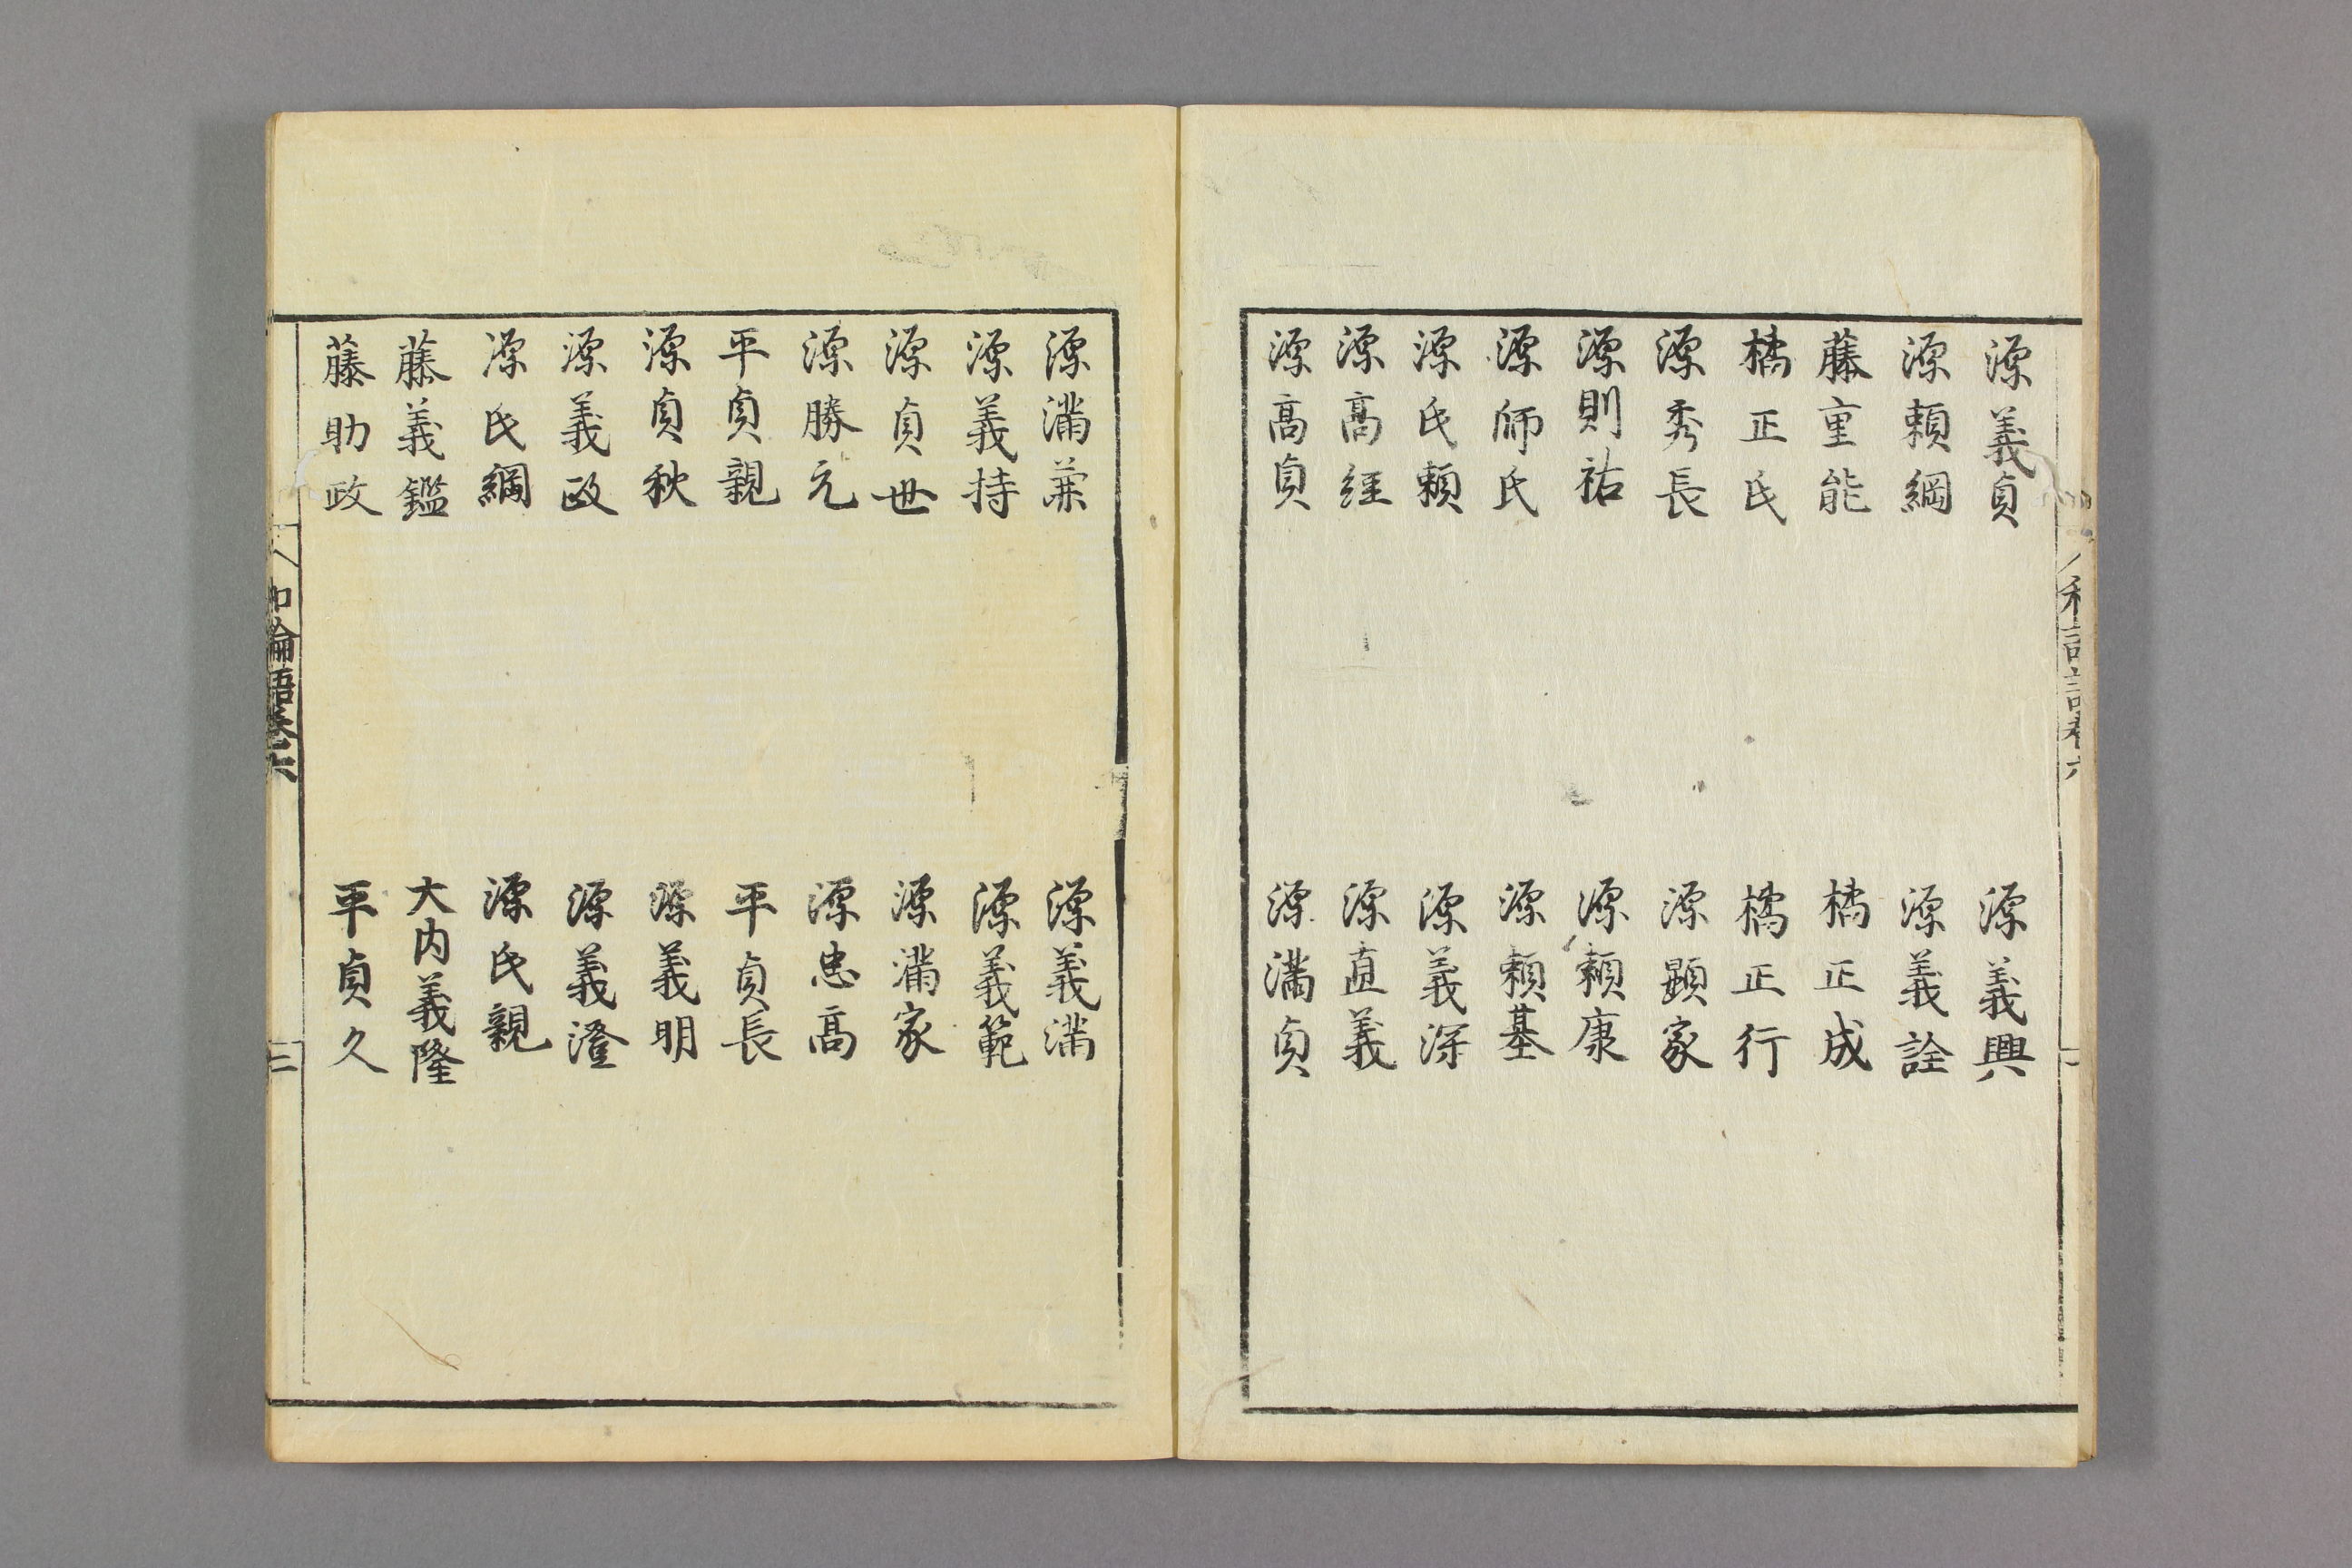 和論語巻六
源義貞 源義興
源頼綱 源義詮
藤重能 橘正成
橘正氏 橘正行
源秀長 源顕家
源則祐 源頼康
源師氏 源頼基
源氏頼 源義深
源髙経 源直義
源髙貞 源満貞
源満兼 源義満
源義持 源義範
源貞世 源満家
源勝元 源忠髙
平貞親 平貞長
源貞秋 源義明
源義政 源義澄
源氏綱 源氏親
藤義鑑 大内義隆
藤助政 平貞久
和論語巻六 三